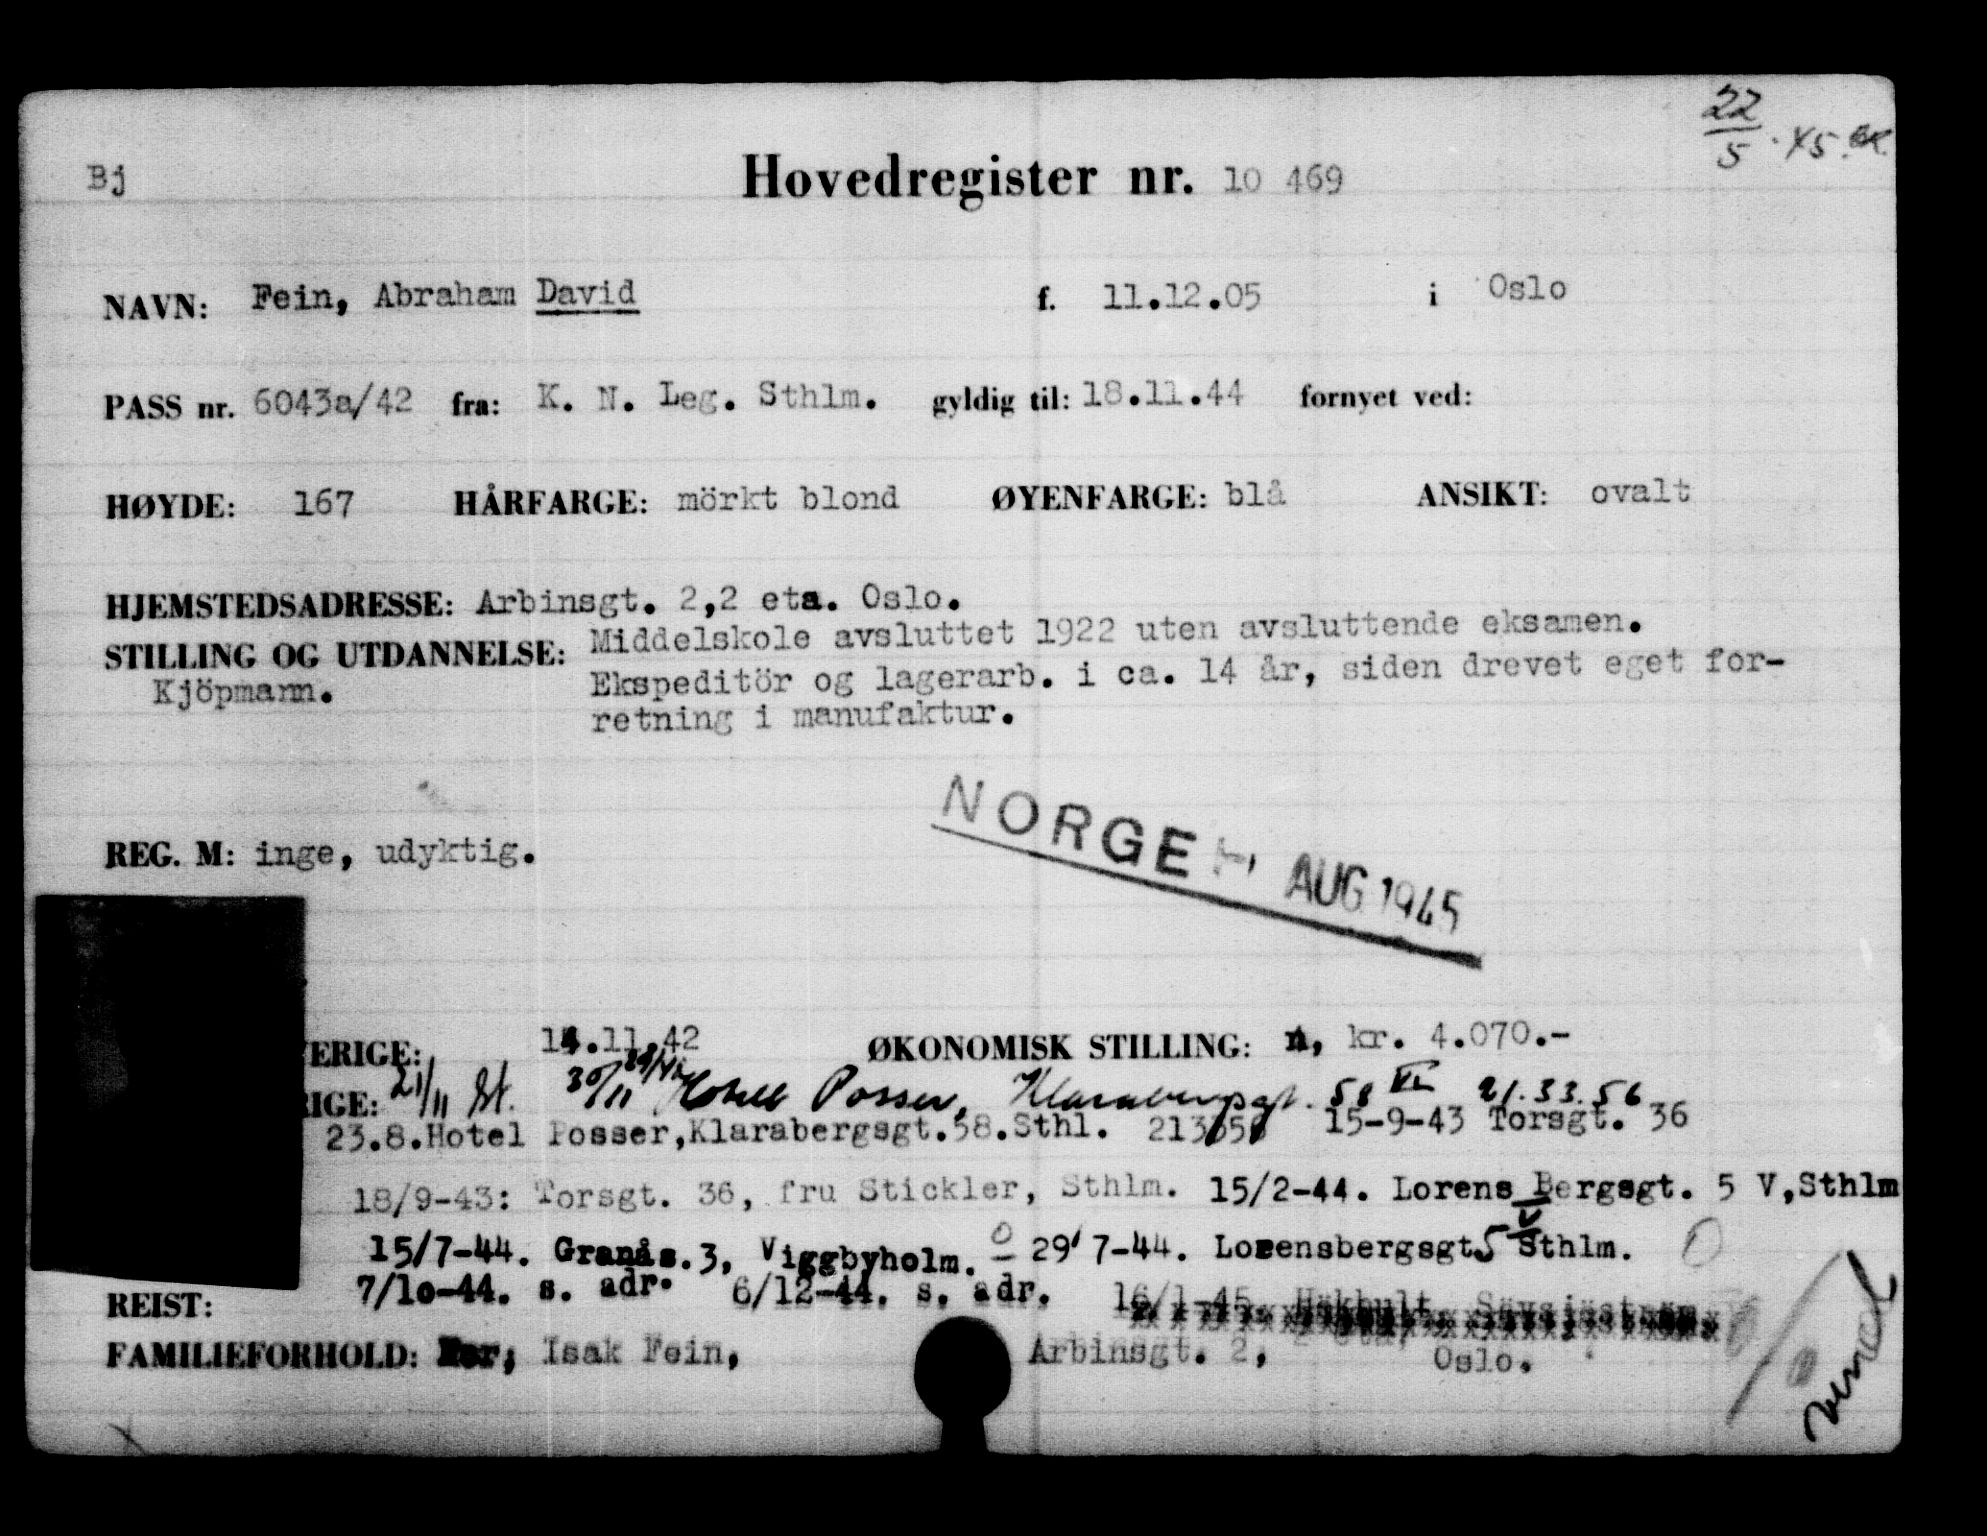 22/5 · 45.
Bj Hovedregister nr. 10 469
NAVN: Fein, Abraham David f. 11.12.05 i Oslo
PASS nr. 6043a/42 fra: K. N. Leg. Sthlm. gyldig til: 18.11.44 fornyet ved:
HØYDE: 167 HÅRFARGE: mörkt blond ØYENFARGE: blå ANSIKT: ovalt
HJEMSTEDSADRESSE: Arbinsgt. 2,2 eta. Oslo.
STILLING OG UTDANNELSE: Middelskole avsluttet 1922 uten avsluttende eksamen.
Kjöpmann. Ekspeditör og lagerarb. i ca. 14 år, siden drevet eget for-
retning i manufaktur.
NORGE AUG 1945
REG. M: inge, udyktig.
ERIGE: 14.11.42 ØKONOMISK STILLING: n, kr. 4.070.-
IGE: 21/11 St. 30/11 Hotell Posser, Klarabergsgt. 58 VI 21.33.56
23.8.Hotel Posser,Klarabergsgt.58.Sthl. 213356 15-9-43 Torsgt. 36
18/9-43: Torsgt. 36, fru Stickler, Sthlm. 15/2-44. Lorens Bergsgt. 5 V,Sthlm
15/7-44. Granås.3, Viggbyholm. 29/7-44. Lorensbergsgt 5 V Sthlm.
7/10-44. s. adr. 6/12-44. s. adr. 16/1-45.
REIST:
FAMILIEFORHOLD: Far, Isak Fein, Arbinsgt. 2, Oslo.